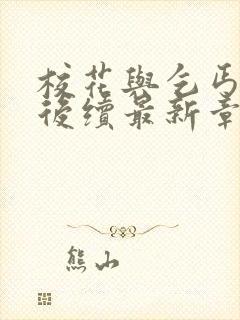 校花與乞丐
後續最新章
熊山